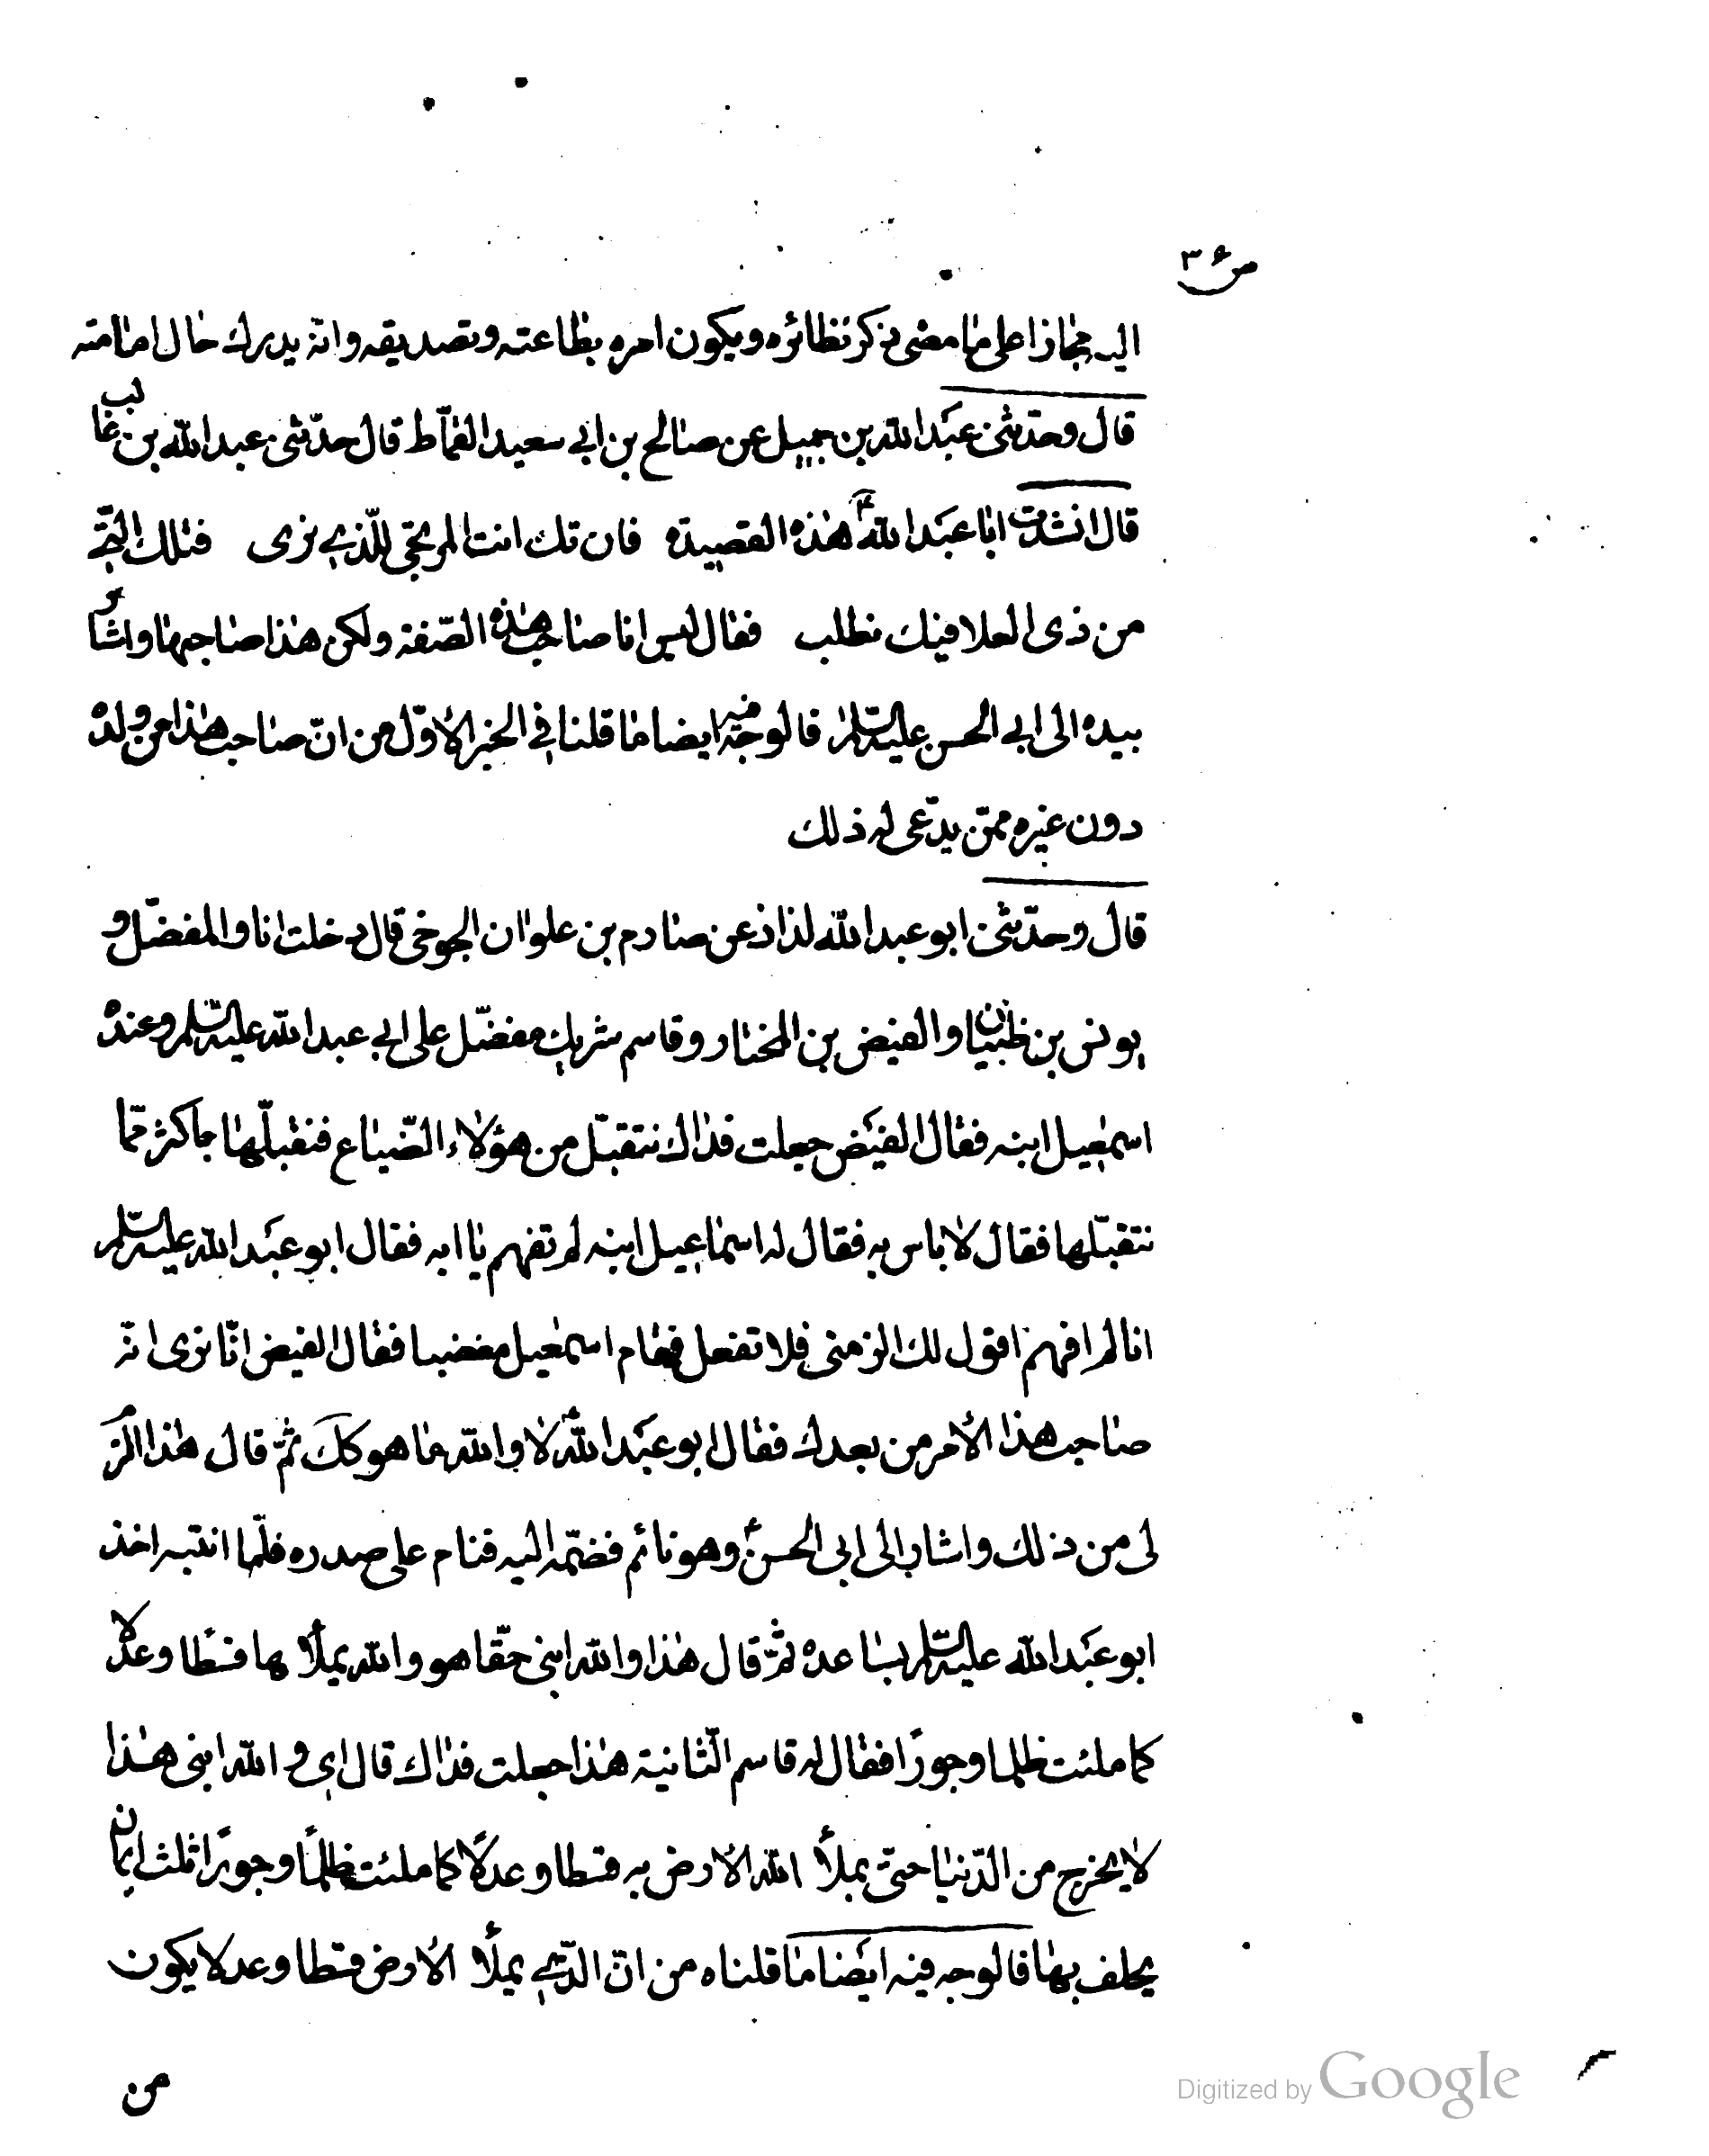 ص ٣٤
اليه مجازا على ما مضى ذكر نظائره ويكون امره بطاعته وتصديقه وانه يدرك حال امامته
قال وحدثنى عبد الله بن جميل عن صالح بن ابي سعيد القماط قال حدّثنى عبد الله بن غالب
قال انشدت ابا عبد الله ع هذه القصيدة فان تك انت المرتجى للّذي نرى فتلك الّتي
من ذى العلا فيك نطلب فقال ليس انا صاحب هذه الصّفة ولكن هذا صاحبها واشار
بيده الى ابي الحسن عليه السّلم فالوجه فيه ايضا ما قلنا في الخبر الاوّل من انّ صاحب هذا من ولده
دون غيره ممّن يدّعى له ذلك
قال وحدّثنى ابو عبد الله لذاذ عن صارم بن علوان الجوخى قال دخلت انا والمفضّل و
يونس بن ظبيان والفيض بن المختار وقاسم شريك مفضّل على ابي عبد الله عليه السّلم وعنده
اسمعيل ابنه فقال الفيض جعلت فداك نتقبّل من هؤلاء الضّياع فنقبلّها باكثر ممّا
نتقبّلها فقال لا باس به فقال له اسماعيل ابنه لم تفهم يا ابه فقال ابو عبد الله عليه السّلم
انا لم افهم اقول لك الزمنى فلا تفعل فقام اسمعيل مغضبا فقال الفيض انّا نرى انّه
صاحب هذا الأمر من بعدك فقال ابو عبد الله ع لا والله ما هو كك ثمّ قال هذا الزم
لى من ذلك واشار الى ابى الحسن ع وهو نائم فضمّه اليه فنام على صدره فلمّا انتبه اخذ
ابو عبد الله عليه السّلم بساعده ثمّ قال هذا والله ابنى حقّا هو والله يملأ ها قسطا وعدلا
كما ملئت ظلما وجورًا فقال له قاسم الثّانية هذا جعلت فداك قال اي والله ابنى هذا
لا يخرج من الدّنيا حتّى يملأ الله الأرض به قسطا وعدلًا كما ملئت ظلمًا وجورًا ثلث ايمان
يحلف بها فالوجه فيه ايضا ما قلناه من انّ الّذي يملأ الأرض قسطا وعدلا يكون
من
Digitized by Google